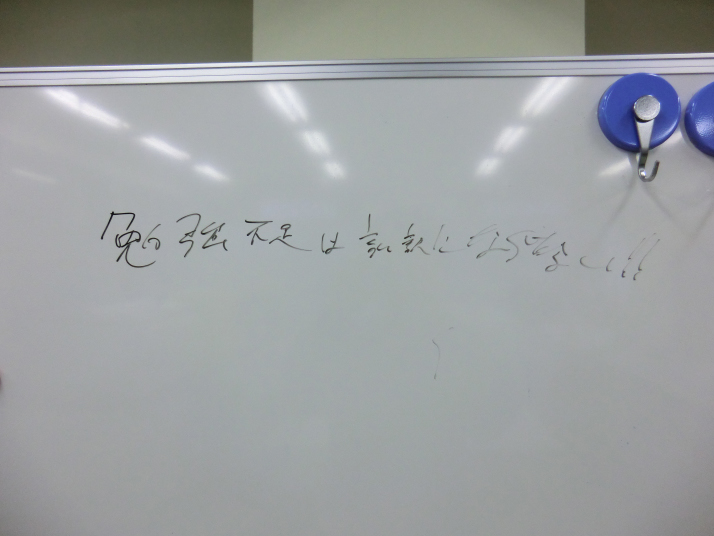 勉強不足は言い訳にならない!!